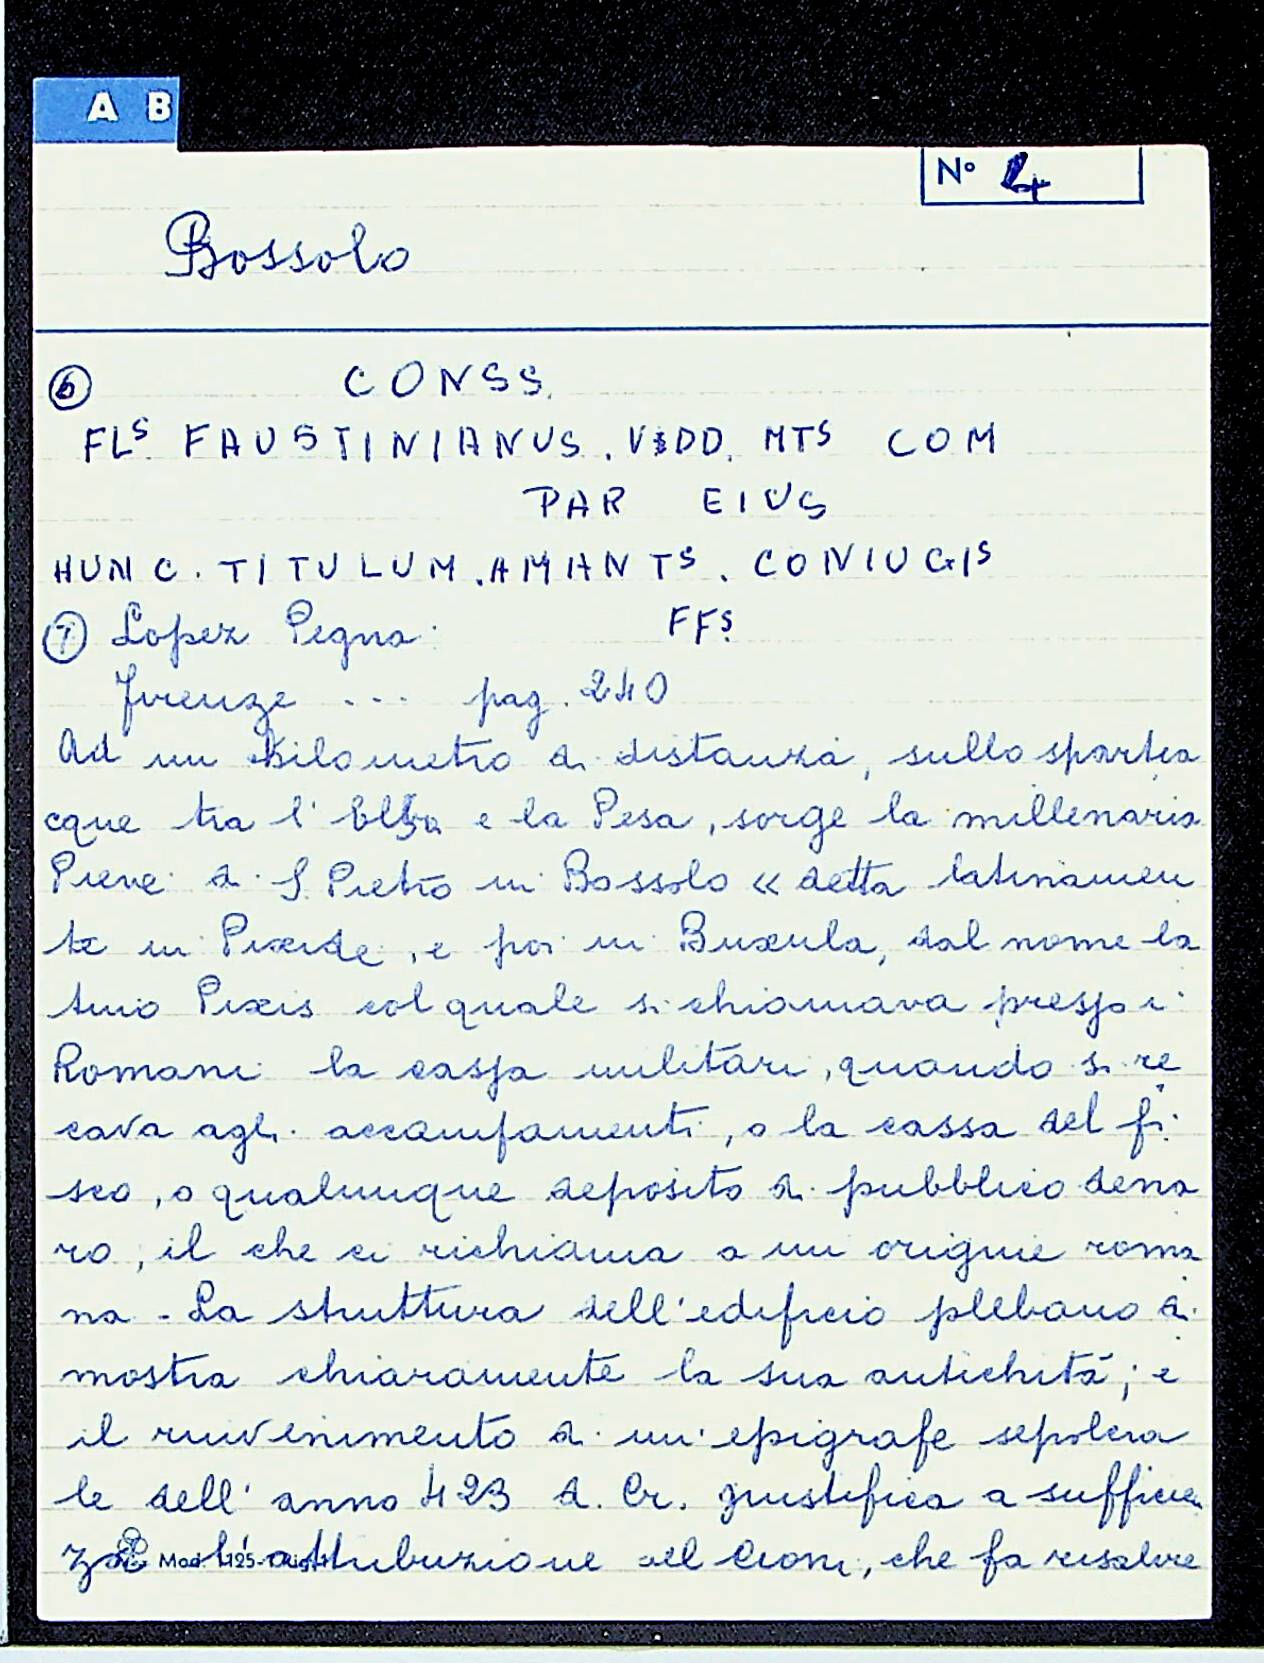 A B
N° 4
Bossolo
6 CONSS.
FLS. FAUSTINIANUS. VSDD. MTS COM
PAR EIUS
HUNC. TITULUM. AMANTS. CONIUGIS
7 Lopez Pegna: FFS.
Firenze ... pag. 240
Ad un kilometro di distanza, sullo spartia
cque tra l'Elsa e la Pesa, sorge la millenaria
Pieve di S. Pietro in Bossolo « detta latinamen
te in Pixide, e poi in Buxula, dal nome la
tino Pixis col quale si chiamava presso i
Romani la cassa militari, quando si re
cava agli accampamenti, o la cassa del fi
sco, o qualunque deposito di pubblico dena
ro, il che ci richiama a un origine roma
na - La struttura dell'edificio plebano di
mostra chiaramente la sua antichità; e
il rinvenimento di un'epigrafe sepolcra
le dell'anno 423 d. Cr. giustifica a sufficien
za l'attribuzione del Cioni, che fa risalire